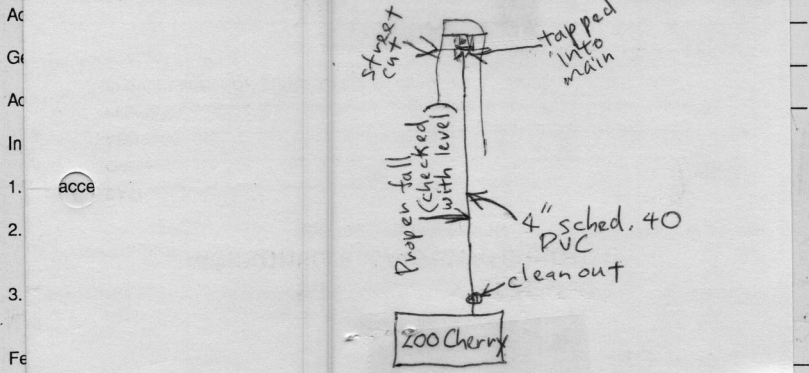 Ac
Ge
Ac
In
1.
acce
2.
3.
Fe
street
cut
tapped
into
main
Proper fall
(checked
with level)
4" sched. 40
PVC
clean out
200 Cherry